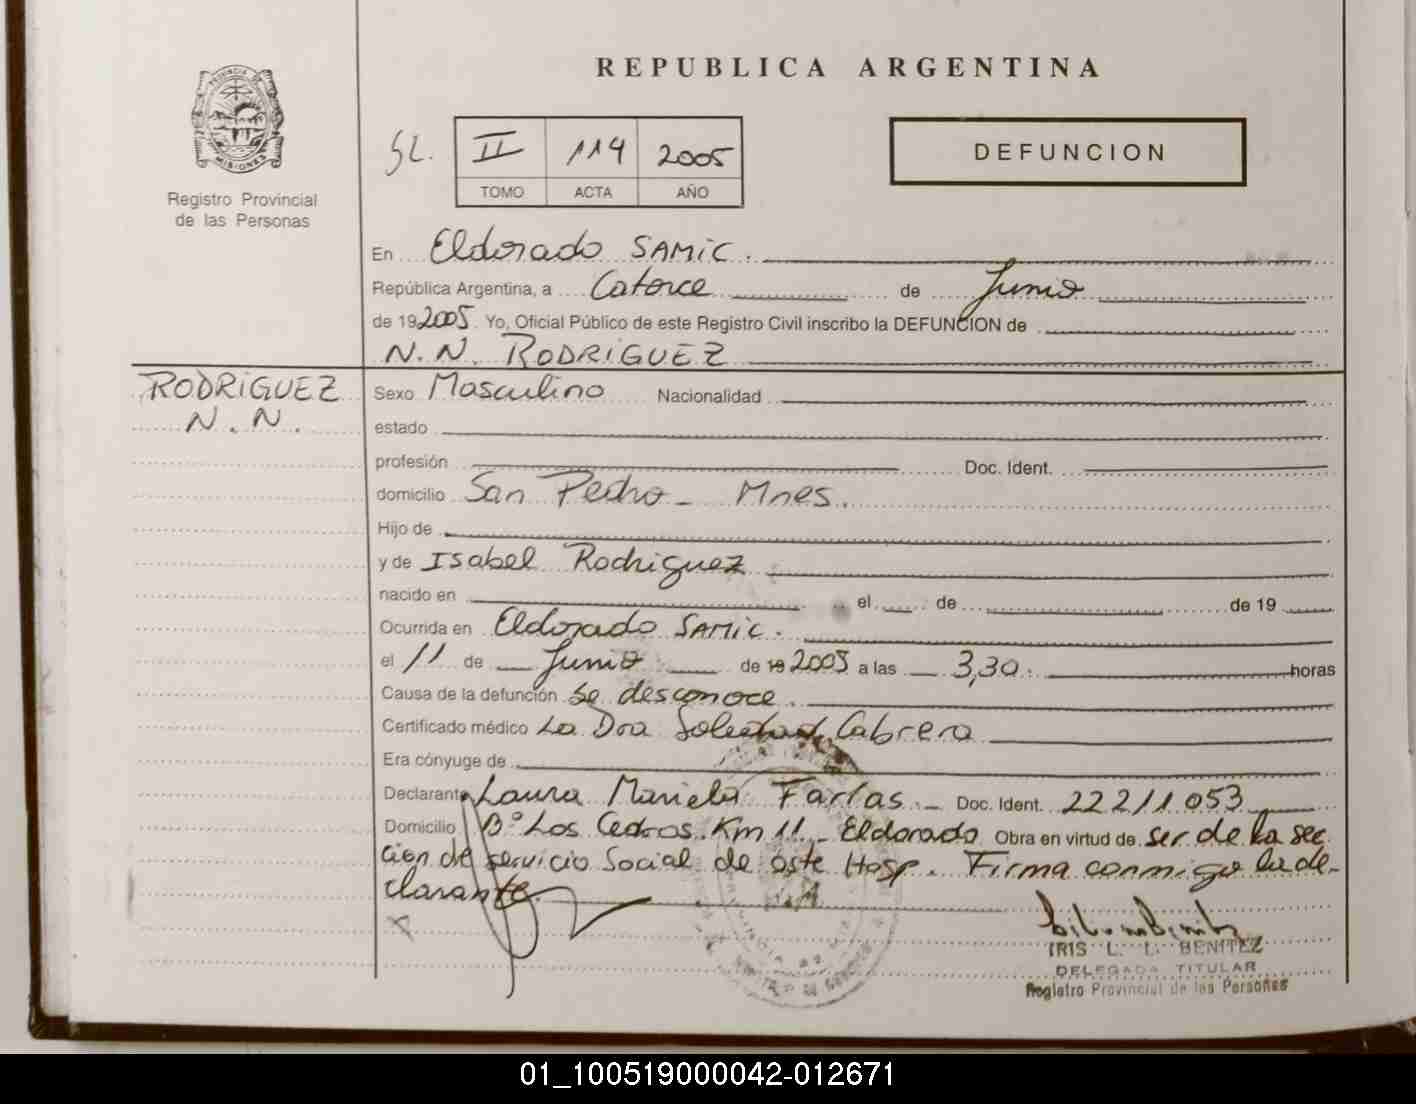 REPUBLICA ARGENTINA
PROVINCIA DE
MISIONES
Registro Provincial
de las Personas
SL.
II 114 2005
TOMO ACTA AÑO
DEFUNCION
En Eldorado SAMIC.
República Argentina, a Catorce de Junio
de 19 2005 Yo, Oficial Público de este Registro Civil inscribo la DEFUNCION de
N.N. RODRIGUEZ
RODRIGUEZ
N.N.
Sexo Masculino Nacionalidad
estado
profesión Doc. Ident.
domicilio San Pedro - Mnes.
Hijo de
y de Isabel Rodriguez
nacido en el de de 19
Ocurrida en Eldorado SAMIC.
el 11 de Junio de 19 2005 a las 3,30. horas
Causa de la defunción Se desconoce.
Certificado médico La Dra Soledad Cabrera
Era cónyuge de
Declarante Laura Mariela Farias.- Doc. Ident. 22211.053
Domicilio Bº Los Cedros. Km 11 - Eldorado Obra en virtud de ser de la sec
cion de servicio Social de este Hosp. Firma conmigo la de-
clarante.
IRIS L. L. BENITEZ
DELEGADA TITULAR
Registro Provincial de las Personas
01_100519000042-012671